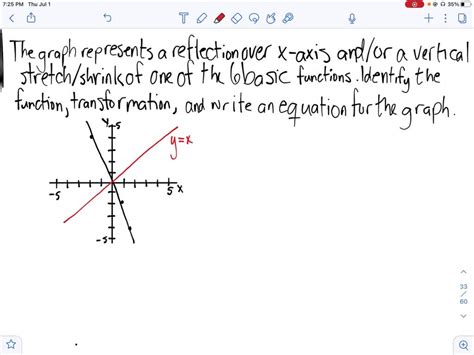 7:25 PM Thu Jul 1
35%
The graph represents a reflection over x-axis and/or a vertical
stretch/shrink of one of the 6 basic functions. Identify the
function, transformation, and write an equation for the graph.
y 5
y=x
-5
5 x
-5
33
/
60